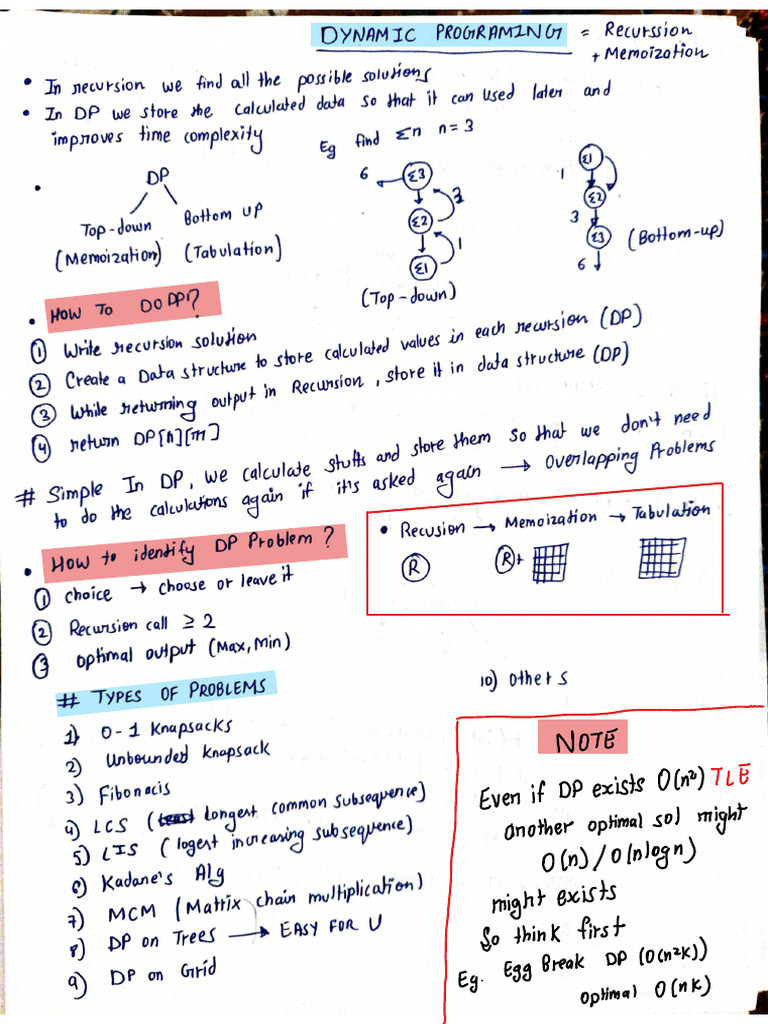 DYNAMIC PROGRAMING = Recurssion
+ Memoization
• In recursion we find all the possible solutions
• In DP we store the calculated data so that it can used later and
improves time complexity
Eg find Σn n=3
• DP
Top-down Bottom up
(Memoization) (Tabulation)
6 Σ3
3
Σ2
1
Σ1
(Top-down)
Σ1
1
Σ2
3
Σ3
6
(Bottom-up)
• HOW TO DO DP?
① Write recursion solution
② Create a Data structure to store calculated values in each recursion (DP)
③ While returning output in Recursion, store it in data structure (DP)
④ return DP[n][m]
# Simple In DP, we calculate stuffs and store them so that we don't need
to do the calculations again if it's asked again → Overlapping Problems
• Recusion → Memoization → Tabulation
R R +
• How to identify DP Problem?
① choice → choose or leave it
② Recursion call ≥ 2
③ optimal output (Max, Min)
# TYPES OF PROBLEMS
1) 0-1 Knapsacks
2) Unbounded knapsack
3) Fibonacis
4) LCS (least longest common subsequence)
5) LIS (logest increasing subsequence)
6) Kadane's Alg
7) MCM (Matrix chain multiplication)
8) DP on Trees → EASY FOR U
9) DP on Grid
10) Others
NOTE
Even if DP exists O(n²) TLE
another optimal sol might
O(n) / O(nlogn)
might exists
So think first
Eg. Egg Break DP (O(n²k))
optimal O(nk)